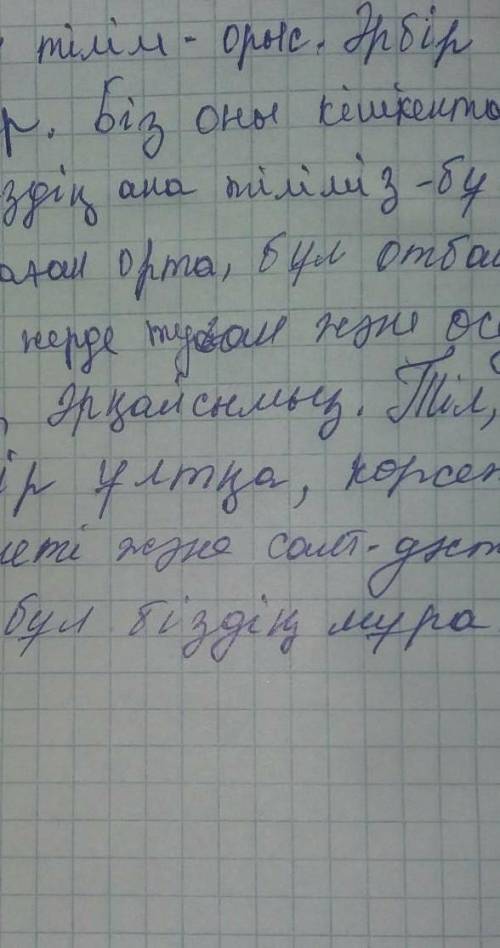 тілім - орыс. Әрбір
р. Біз оны кішкента
здің ана тіліміз - бу
орта, бұл отба
жерде туған және өс
Әрқайсымыз. Тіл,
ір ұлтқа, көрсет
еті және салт-дәст
бұл біздің мұра